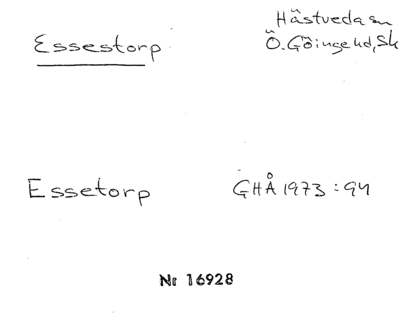 Essestorp
Hästveda sn
Ö. Göinge hd, Sk
Essetorp
GHÅ 1973:94
Nr 16928